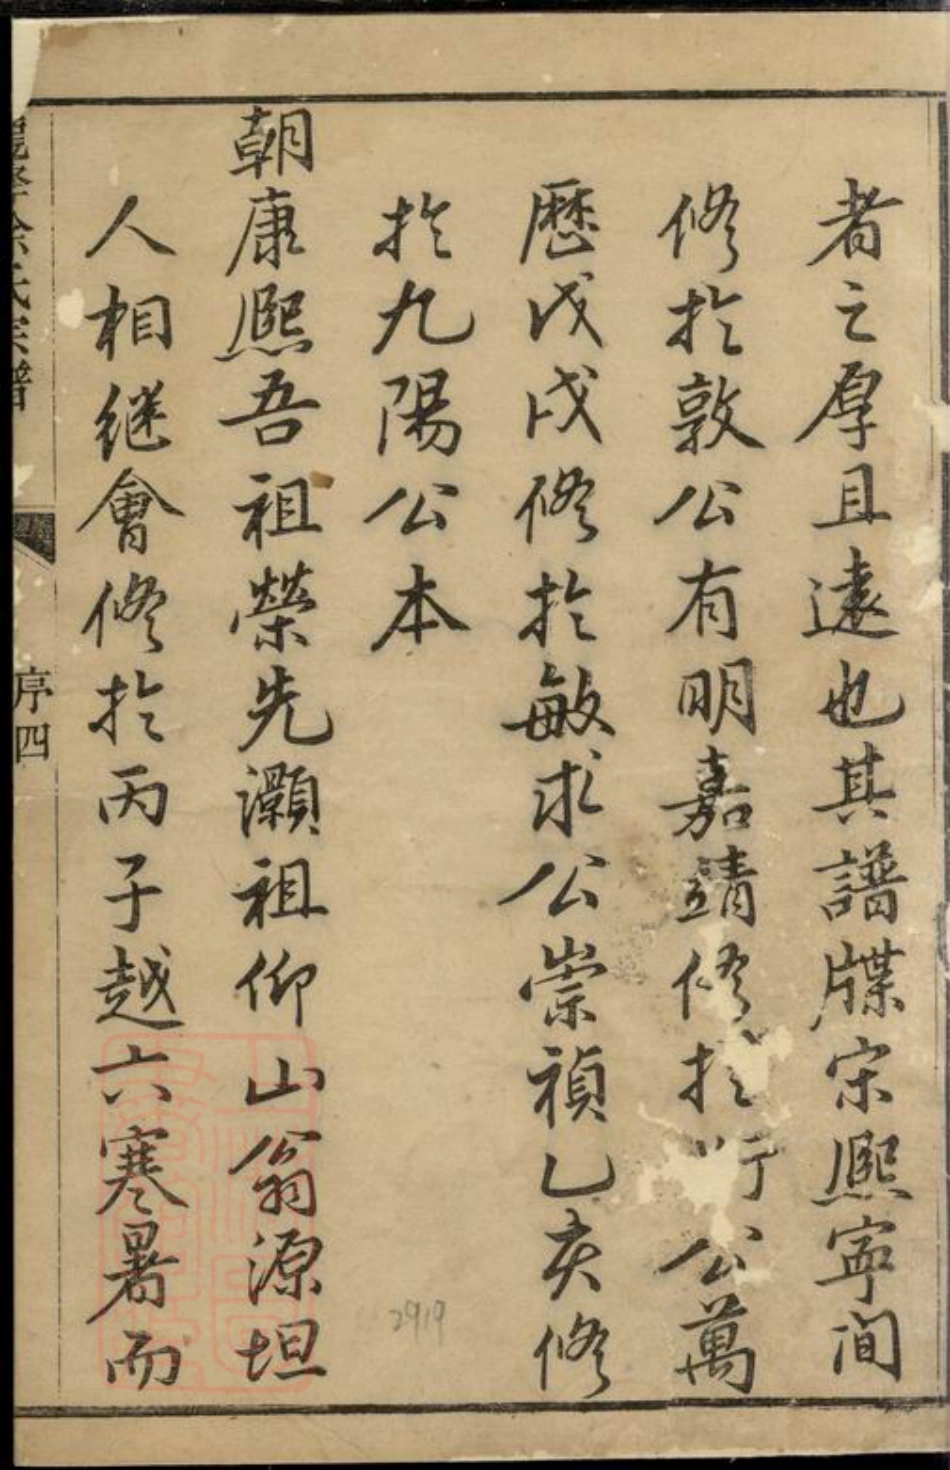 者之厚且遠也其譜牒宋熙寧间
修於敦公有明嘉靖修於 公萬
歷戊戌修於敏求公崇禎乙亥修
於九陽公本
朝康熙吾祖榮先灝祖仰山翁源坦
人相継會修於丙子越六寒暑而
余氏宗譜
序四
2919